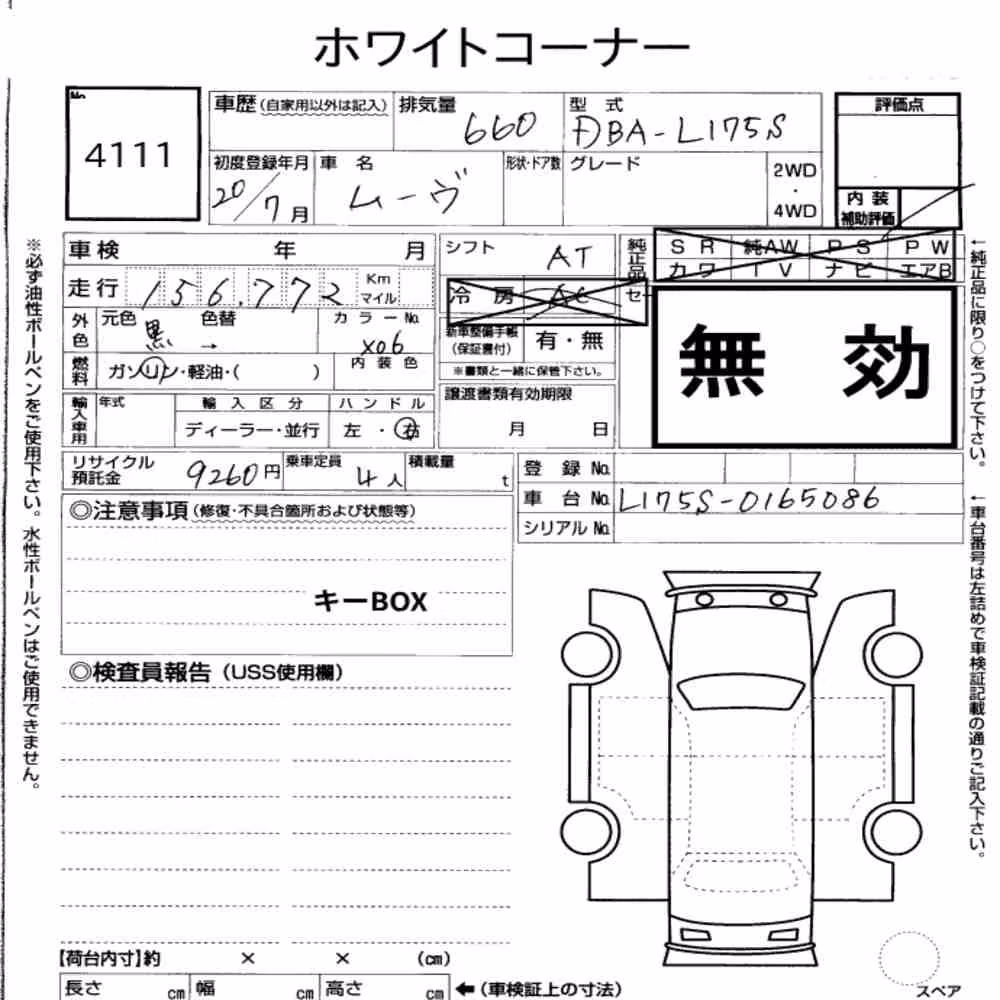 ホワイトコーナー
No.
4111
車歴 (自家用以外は記入)
排気量 660
型式 DBA-L175S
評価点
初度登録年月 20/7月
車名 ムーヴ
形状・ドア数
グレード
2WD
・
4WD
内装
補助評価
車検 年 月
シフト AT
純正品
SR 純AW PS PW
カワ TV ナビ エアB
走行 156,772 Km
マイル
冷房 AC
セー
外色 元色 黒 色替 →
カラーNo. X06
内装色
新車整備手帳
(保証書付) 有・無
※書類と一緒に保管下さい。
無効
燃料 ガソリン・軽油・( )
譲渡書類有効期限
月 日
輸入車用 年式
輸入区分
ディーラー・並行
ハンドル
左・右
リサイクル
預託金 9260円
乗車定員 4人
積載量 t
登録No.
車台No. L175S-0165086
シリアルNo.
◎注意事項 (修復・不具合箇所および状態等)
キーBOX
◎検査員報告 (USS使用欄)
【荷台内寸】約 × × (cm)
長さ cm 幅 cm 高さ cm ←(車検証上の寸法)
スペア
※必ず油性ボールペンをご使用下さい。水性ボールペンはご使用できません。
←純正品に限り○をつけて下さい。
←車台番号は左詰めで車検証記載の通りご記入下さい。